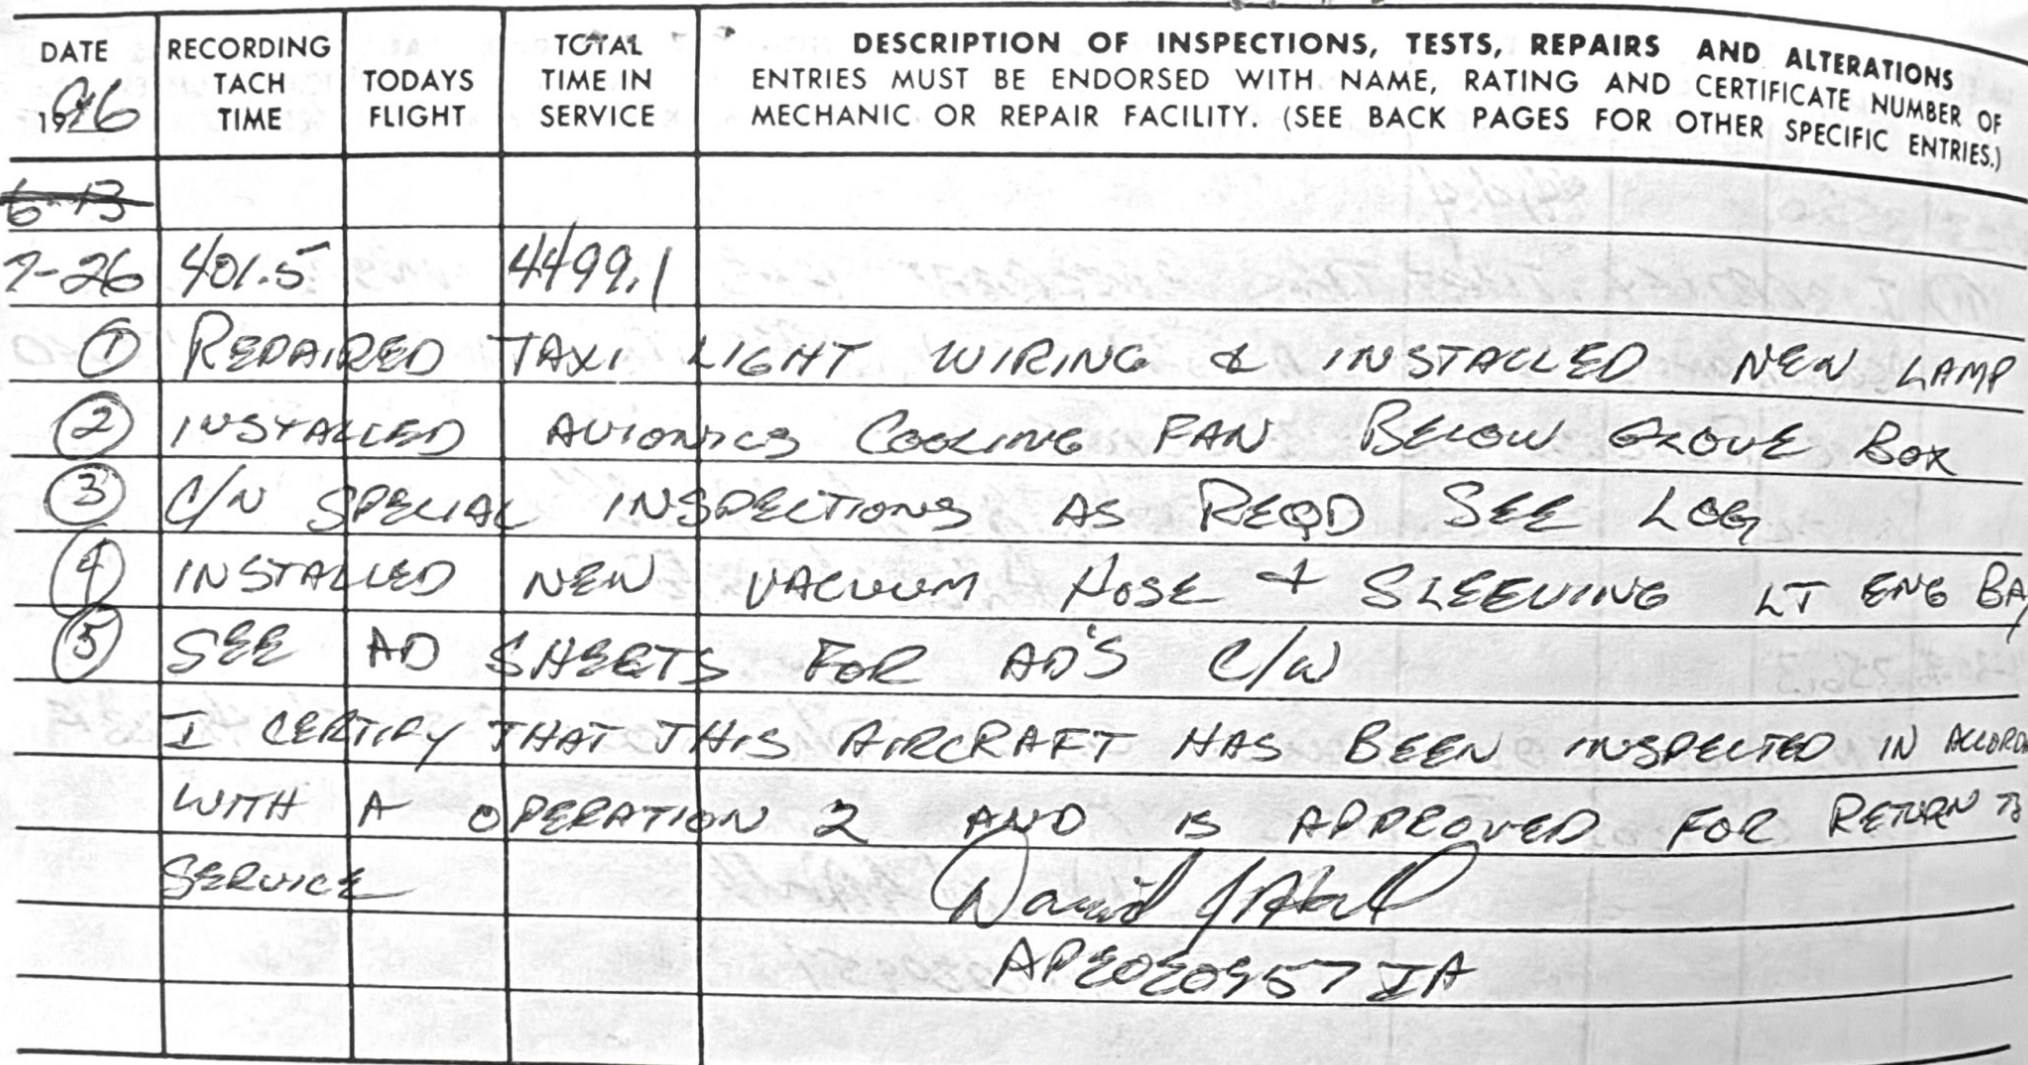 DATE 1996 RECORDING TACH TIME TODAYS FLIGHT TOTAL TIME IN SERVICE
DESCRIPTION OF INSPECTIONS, TESTS, REPAIRS AND ALTERATIONS
ENTRIES MUST BE ENDORSED WITH NAME, RATING AND CERTIFICATE NUMBER OF
MECHANIC OR REPAIR FACILITY. (SEE BACK PAGES FOR OTHER SPECIFIC ENTRIES.)
6-13
7-26 401.5 4499.1
① REPAIRED TAXI LIGHT WIRING & INSTALLED NEW LAMP
② INSTALLED AVIONICS COOLING FAN BELOW GLOVE BOX
③ C/W SPECIAL INSPECTIONS AS REQD SEE LOG
④ INSTALLED NEW VACUUM HOSE + SLEEVING LT ENG BAY
⑤ SEE AD SHEETS FOR AD'S C/W
I CERTIFY THAT THIS AIRCRAFT HAS BEEN INSPECTED IN ACCORD
WITH A OPERATION 2 AND IS APPROVED FOR RETURN TO
SERVICE David J
IA